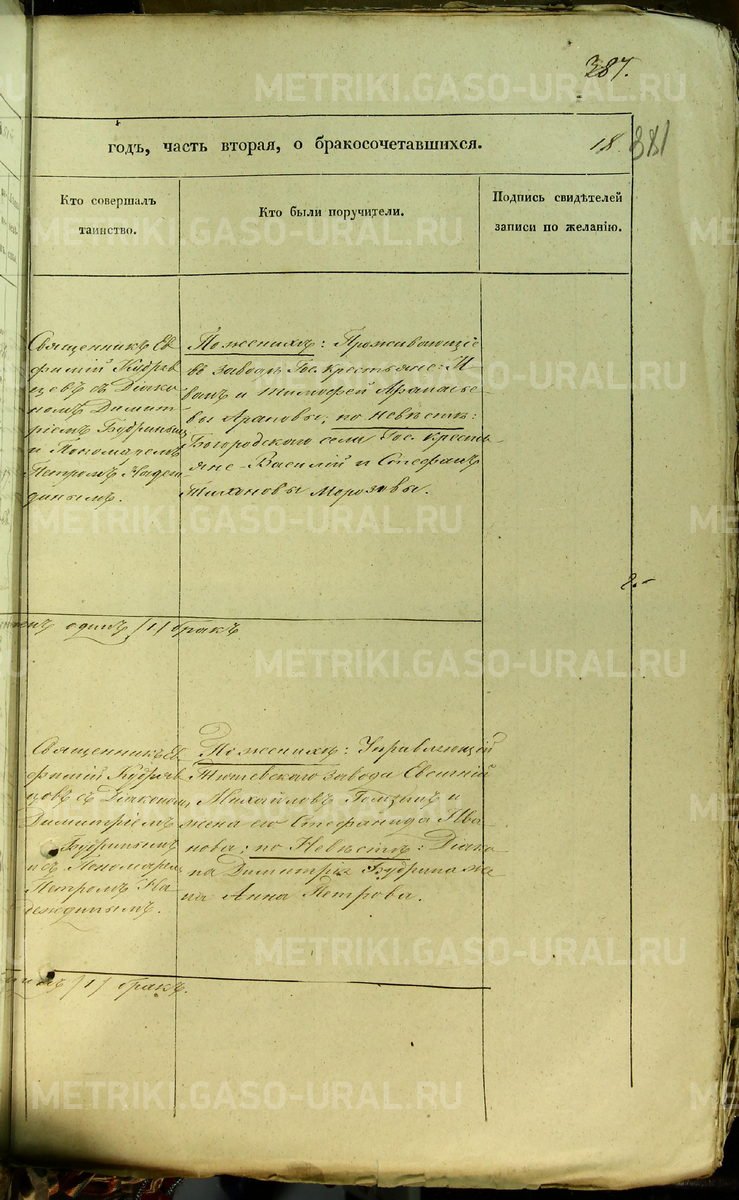 387.
годъ, часть вторая, о бракосочетавшихся.
18
381
Кто совершалъ
таинство.
Кто были поручители.
Подпись свидѣтелей
записи по желанію.
Священникъ Ев
фимій Кудряв
цевъ съ Діако
номъ Димит
ріемъ Будринымъ
и Пономаремъ
Петромъ Надеж
динымъ.
По женихѣ: Проживающіе
въ заводѣ Гос. крестьяне: И
ванъ и Тимофей Афанасье
вы Араповы; по невѣстѣ:
Богородскаго села Гос. кресть
яне Василій и Стефанъ
Тихоновы Морозовы.
одинъ /1/ бракъ
Священникъ Ев
фимій Кудряв
цовъ съ Діакономъ
Димитріемъ
Будринымъ
и съ Пономаремъ
Петромъ На
деждинымъ.
По женихѣ: Управляющій
завода Евгеній
Михайловъ и
жена его Стефанида Ива
нова; по Невѣстѣ: Діако
на Димитрія Будрина же
на Анна Петрова.
/1/ бракъ.
METRIKI.GASO-URAL.RU